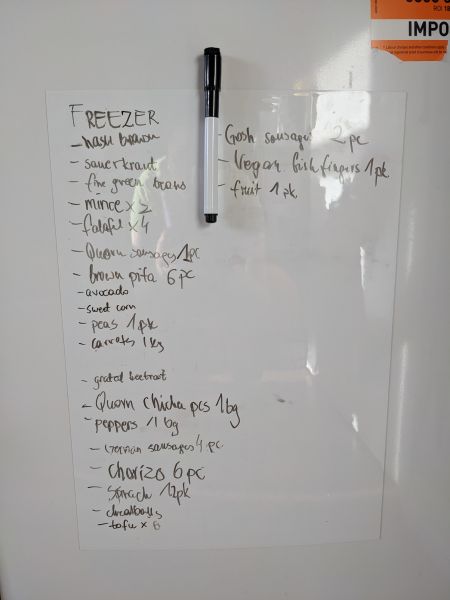 FREEZER
- hash brown
- sauerkraut
- fine green beans
- mince x 2
- falafel x 4
- Quorn sausages 1pc
- brown pita 6 pc
- avocado
- sweet corn
- peas 1 pk
- carrots 1 kg
- grated beetroot
- Quorn chicken pcs 1 bg
- peppers 1 bg
- German sausages 4 pc
- Chorizo 6 pc
- Spinach pk
- meatballs
- tofu x
- Gosh sausages 2 pc
- Vegan fish fingers 1 pk
- fruit 1 pk
IMPO